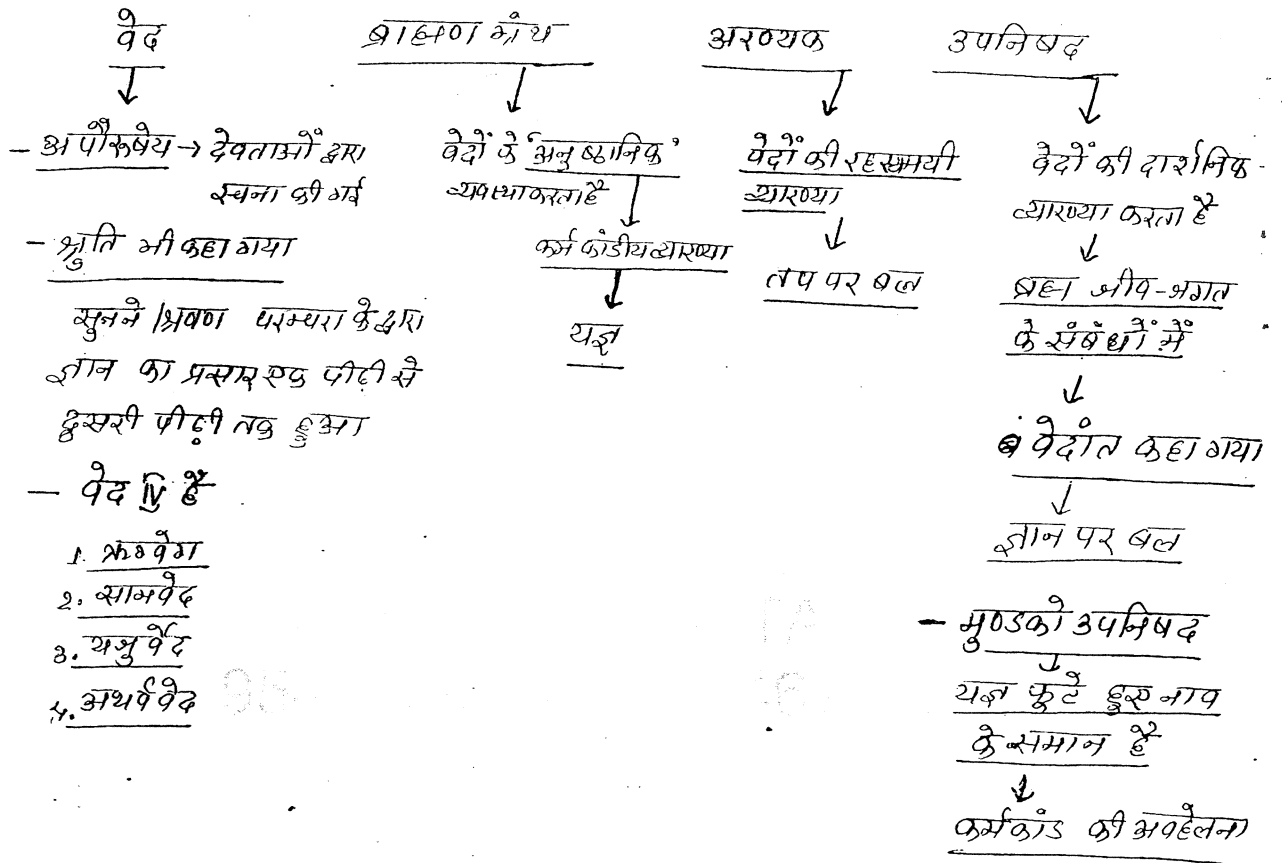 वेद
↓
- अपौरूषेय → देवताओं द्वारा
रचना की गई
- श्रुति भी कहा गया
सुनने / श्रवण परम्परा के द्वारा
ज्ञान का प्रसार एक पीढ़ी से
दुसरी पीढ़ी तक हुआ
- वेद IV है
1. ऋगवेग
2. सामवेद
3. यजुर्वेद
4. अथर्ववेद
ब्राह्मण ग्रंथ
↓
वेदों के 'अनुष्ठानिक'
व्यवस्था करता है
↓
कर्म कांडीय व्याख्या
↓
यज्ञ
अरण्यक
↓
वेदों की रहस्यमयी
व्याख्या
↓
तप पर बल
उपनिषद
↓
वेदों की दार्शनिक-
व्याख्या करता है
↓
ब्रह्म जीव-जगत
के संबंधों में
↓
वेदांत कहा गया
↓
ज्ञान पर बल
- मुण्डको उपनिषद
↓
यज्ञ फूटे हुए नाव
के समान है
↓
कर्मकांड की अवहेलना